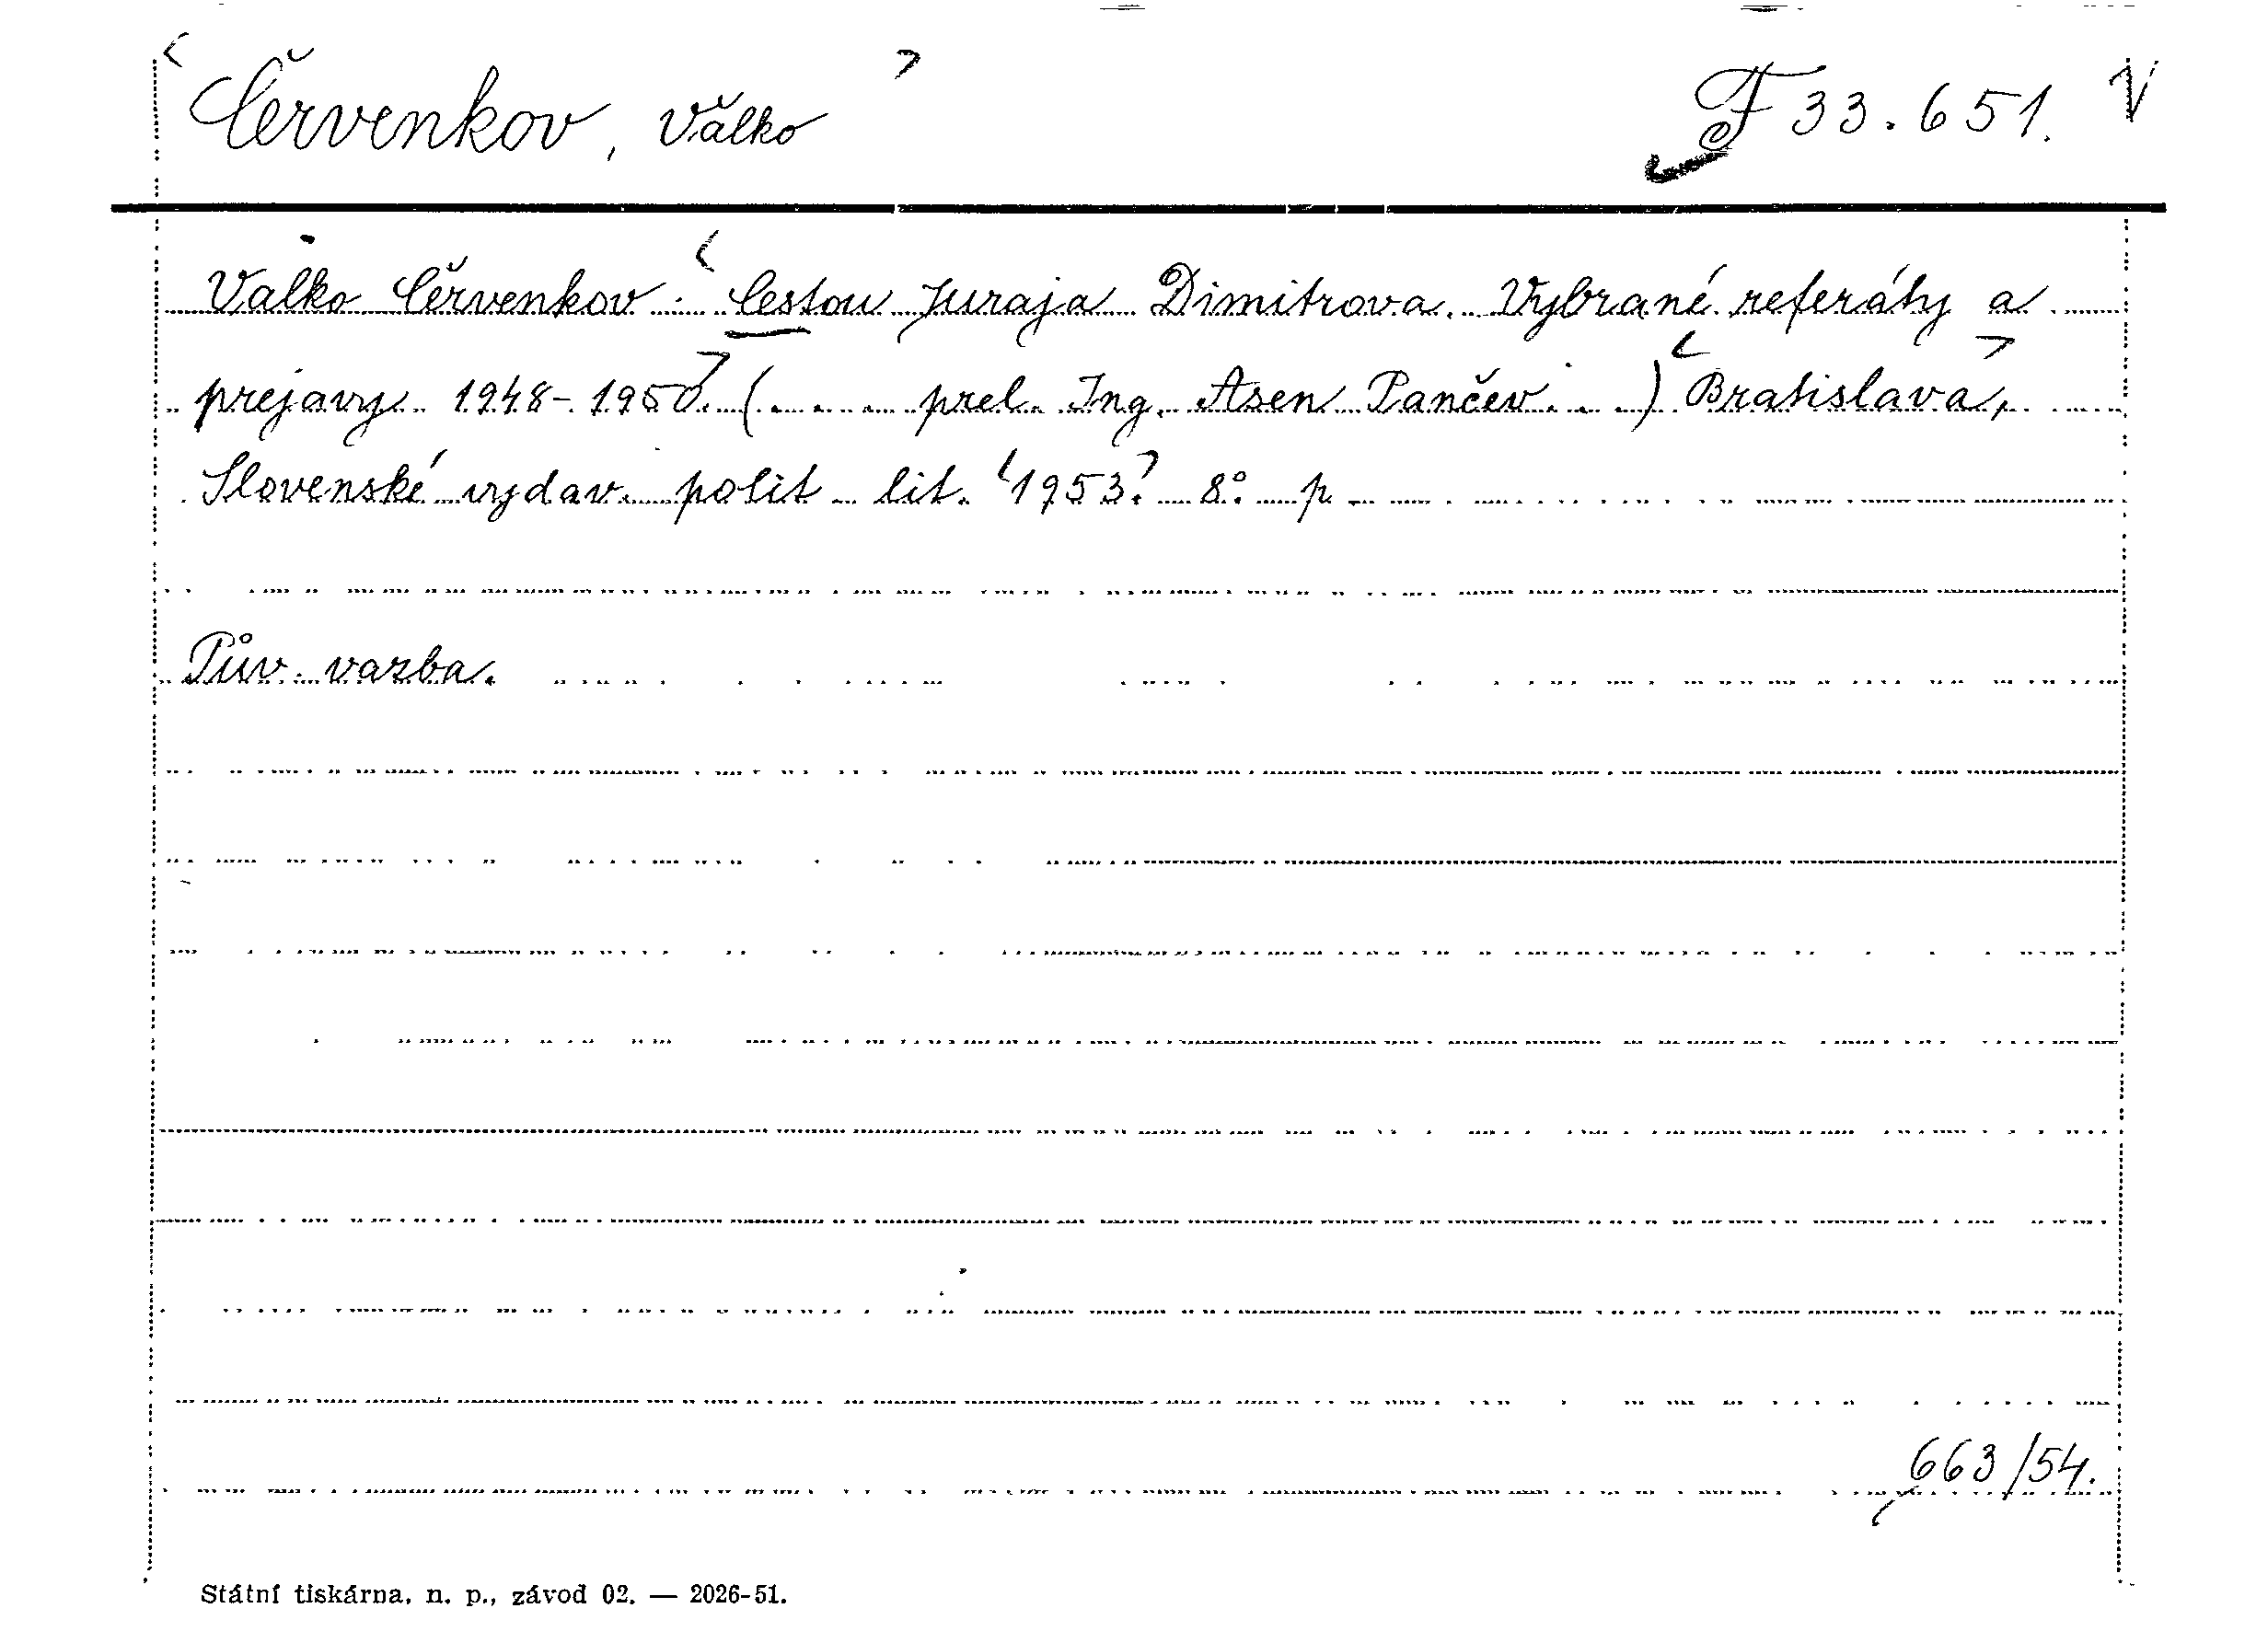 Červenkov, Vălko F 33.651. V
Valko Červenkov: Cestou Juraja Dimitrova. Vybrané referáty a
prejavy 1948-1950. (... prel. Ing. Asen Pančev...) Bratislava,
Slovenské vydav. polit. lit. 1953. 8° p.
Pův. vazba.
663/54.
Státní tiskárna, n. p., závod 02. — 2026-51.